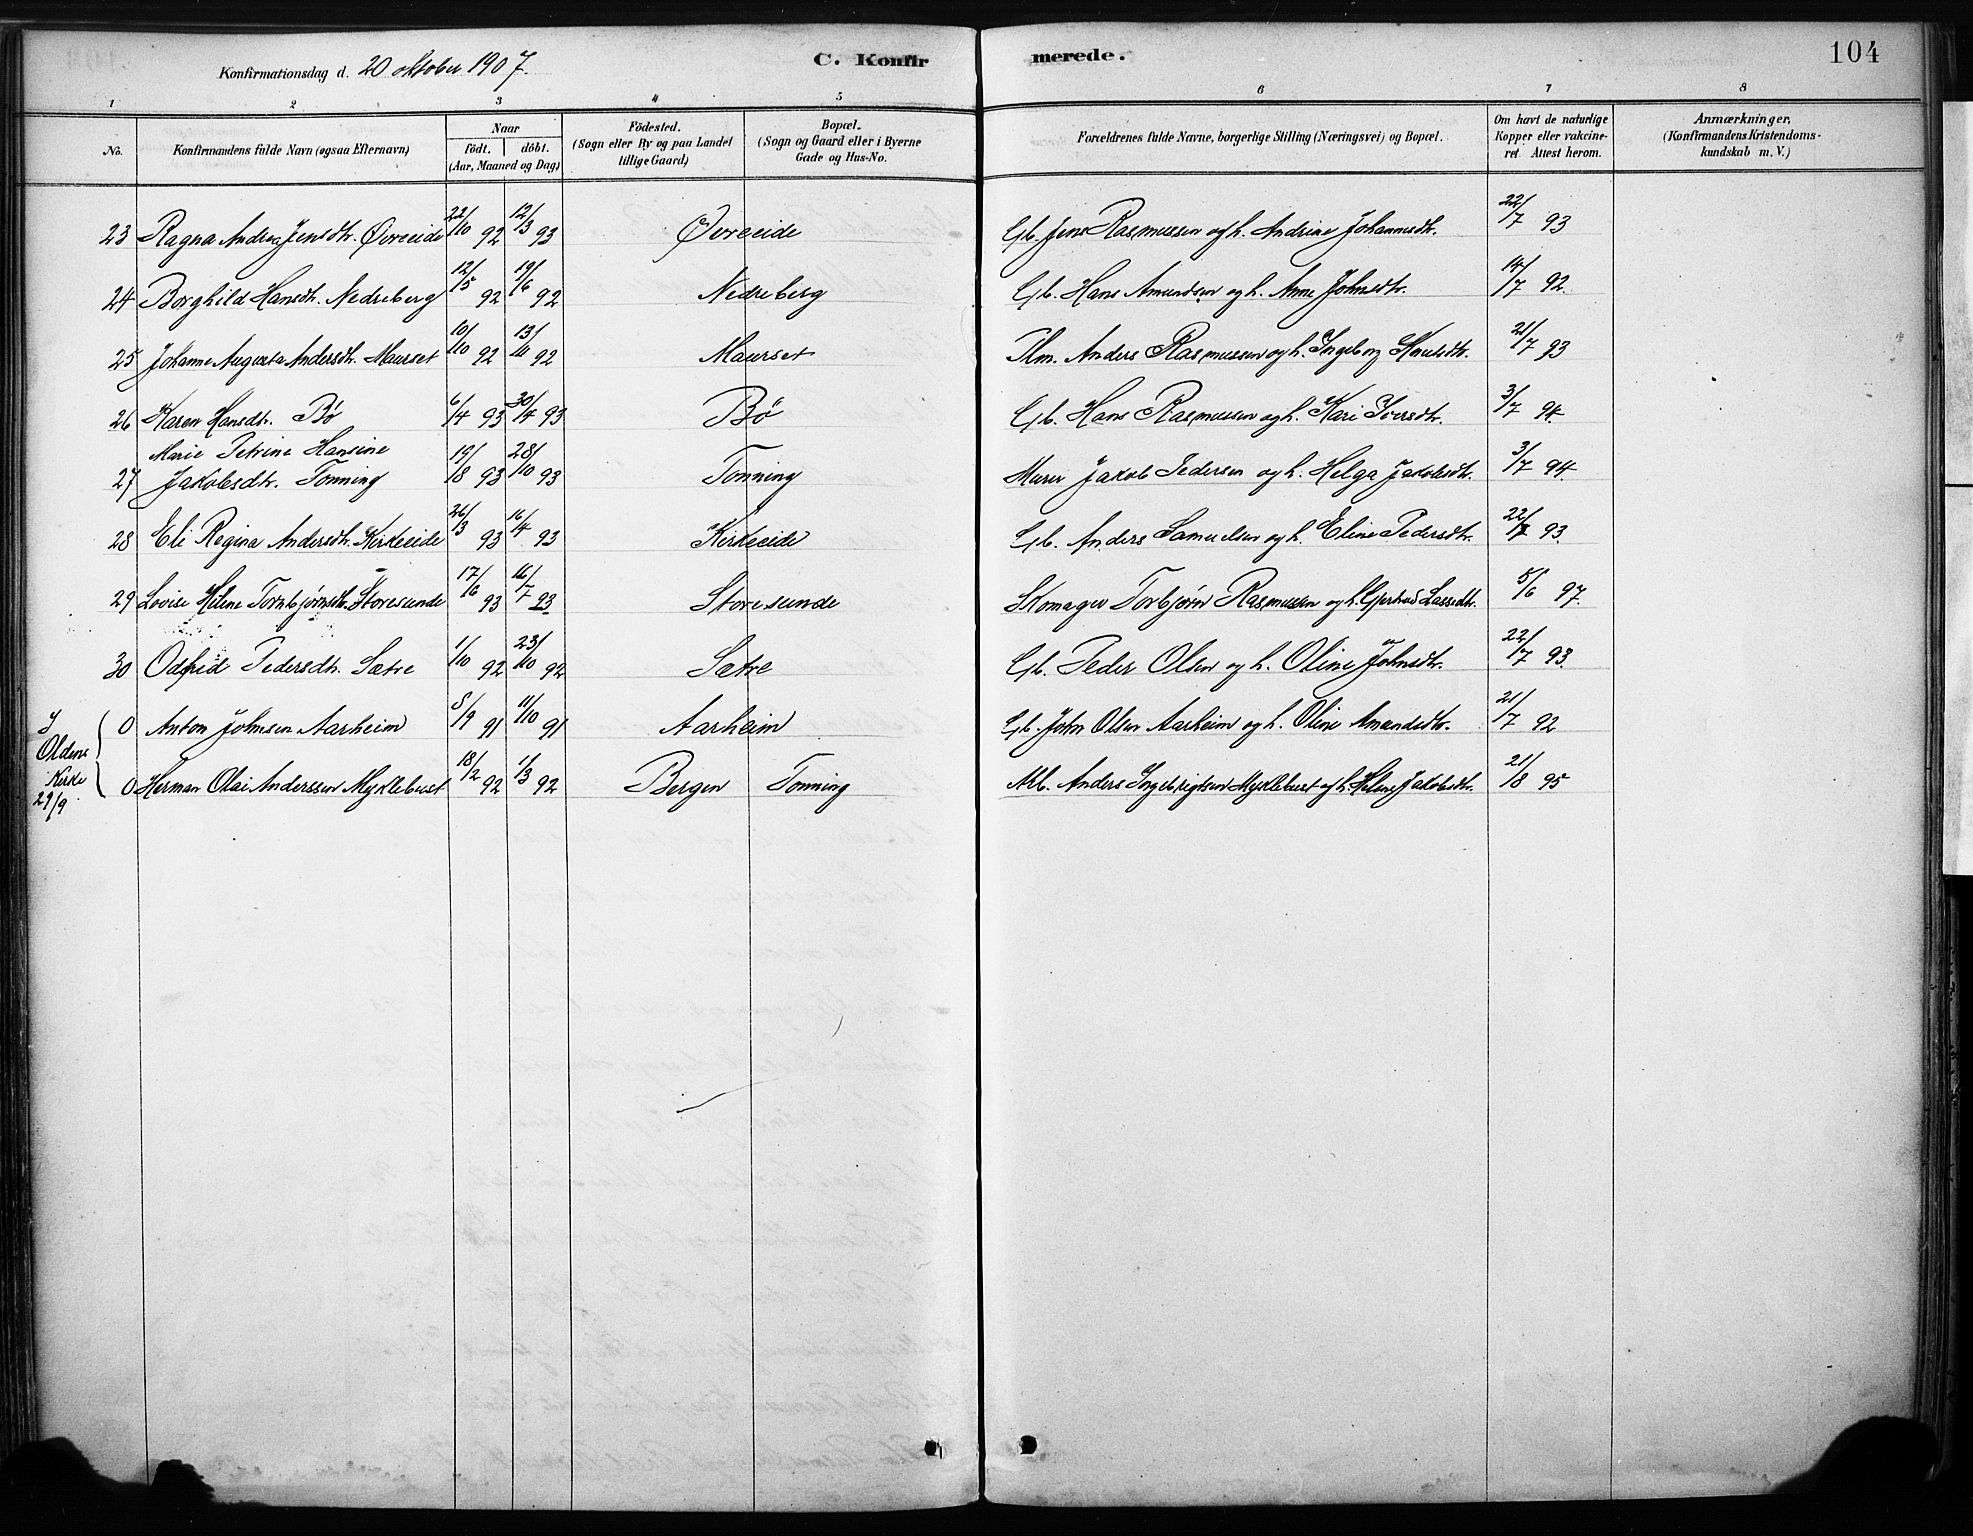 Konfirmationsdag d. 20 oktober 1907.
C. Konfir
merede.
104
1 2 3 4 5 6 7 8
No.
Konfirmandens fulde Navn (ogsaa Efternavn)
Naar
födt. döbt.
(Aar, Maaned og Dag)
Födested.
(Sogn eller By og paa Landet
tillige Gaard)
Bopæl.
(Sogn og Gaard eller i Byerne
Gade og Hus-No.
Forældrenes fulde Navne, borgerlige Stilling (Næringsvei) og Bopæl.
Om havt de naturlige
Kopper eller vakcine-
ret. Attest herom.
Anmærkninger,
(Konfirmandens Kristendoms-
kundskab m. V.)
23 Ragna Andrea Jensdtr. Øvreeide 22/10 92 12/3 93 Øvreeide Gb. Jens Rasmussen og h. Andrine Johannesdtr. 22/7 93
24 Borghild Hansdtr. Nedreberg 12/5 92 19/6 92 Nedreberg Gb. Hans Amundsen og h. Anne Johnsdtr. 14/7 92.
25 Johanne Augusta Andersdtr. Maurset 10/10 92 13/11 92 Maurset Plm. Anders Rasmussen og h. Ingeborg Knutsdtr. 21/7 93
26 Karen Hansdtr. Bø 6/4 93 30/4 93 Bø Gb. Hans Rasmussen og h. Kari Iversdtr. 3/7 94.
Marie Petrine Hansine
27 Jakobsdtr. Tonning 19/18 93 28/10 93 Tonning Murer Jakob Pedersen og h. Helga Jakobsdtr. 3/7 94.
28 Eli Regina Andersdtr. Kirkeeide 26/3 93 16/4 93 Kirkeeide Gb. Anders Samuelsen og h. Eline Pedersdtr. 22/7 93.
29 Lovise Helene Torbjørnsdtr. Storesunde 17/6 93 16/7 93 Storesunde Skomager Torbjørn Rasmussen og h. Gjertrud Lassedtr. 5/6 97.
30 Odfrid Pedersdtr. Sætre 1/10 92 23/10 92 Sætre Gb. Peder Olsen og h. Oline Johnsdtr. 22/7 93.
I Oldens Kirke 29/9
0 Anton Johnsen Aarheim 8/9 91 11/10 91 Aarheim Gb. John Olsen Aarheim og h. Oline Amundsdtr. 21/7 92
0 Herman Olai Anderssen Myklebust 18/2 92 1/3 92 Bergen Tonning Arb. Anders Ingebrigtsen Myklebust og h. Helene Jakobsdtr. 21/8 95